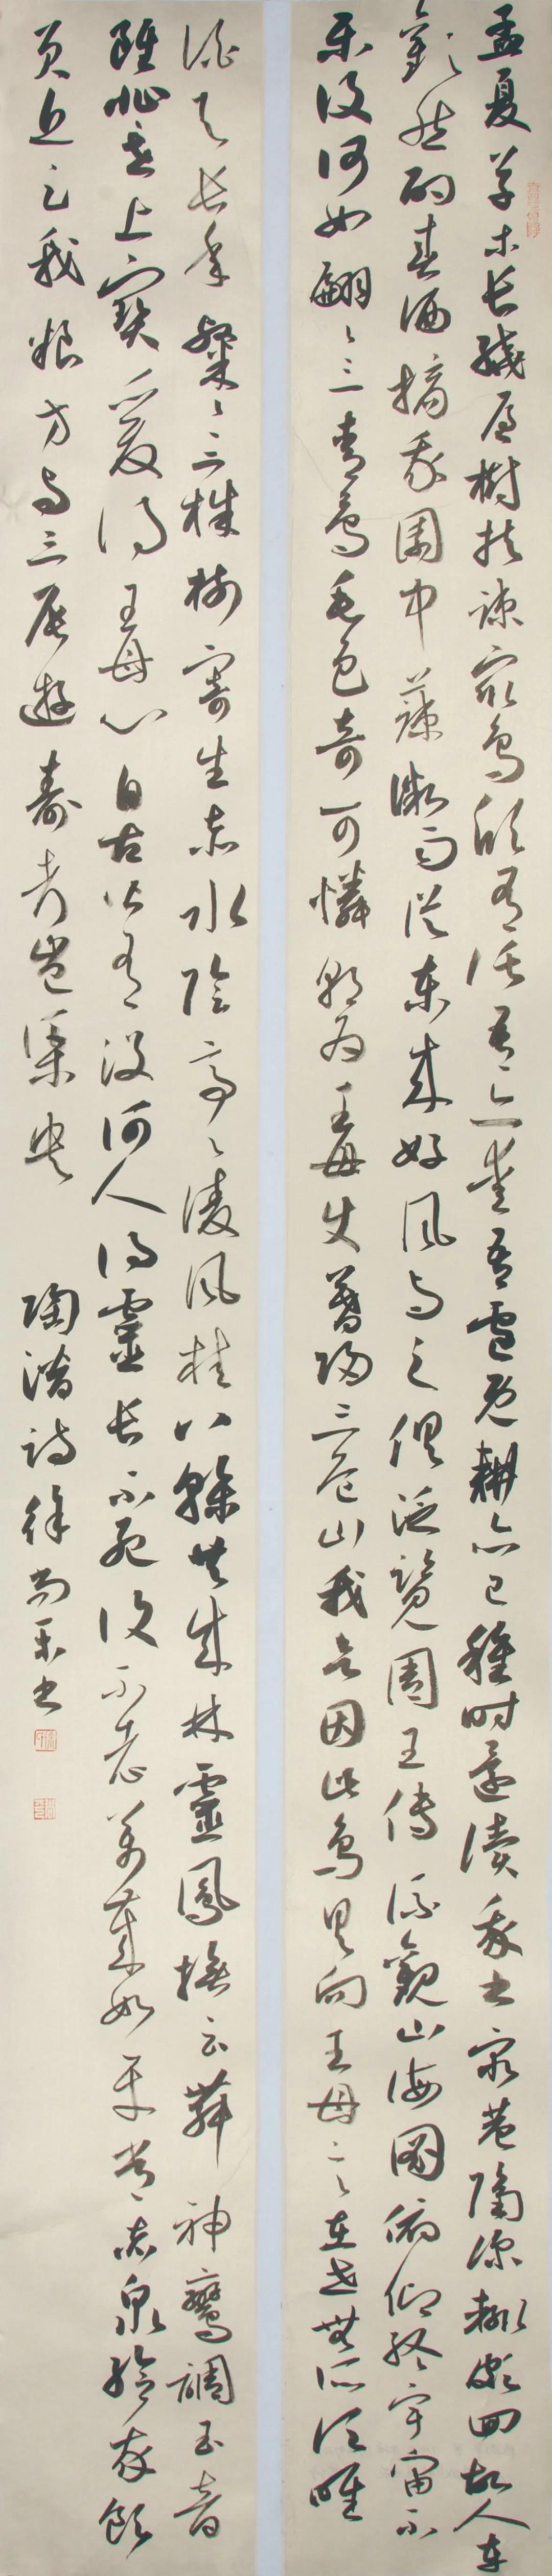 孟夏草木長繞屋樹扶疎衆鳥欣有託吾亦愛吾廬既耕亦已種時還讀我書窮巷隔深轍頗回故人車
歡然酌春酒摘我園中蔬微雨從東來好風與之俱泛覽周王傳流觀山海圖俯仰終宇宙不
樂復何如翩翩三青鳥毛色奇可憐朝爲王母使暮歸三危山我欲因此鳥具向王母言在世無所須唯
酒與長年粲粲三株樹寄生赤水陰亭亭凌風桂八幹共成林靈鳳撫雲舞神鸞調玉音
雖非世上寶爰得王母心自古皆有没何人得靈長不死復不老萬歲如平常赤泉給我飲
員丘足我糧方與三辰遊壽考豈渠央 陶潛詩徐尚樂書